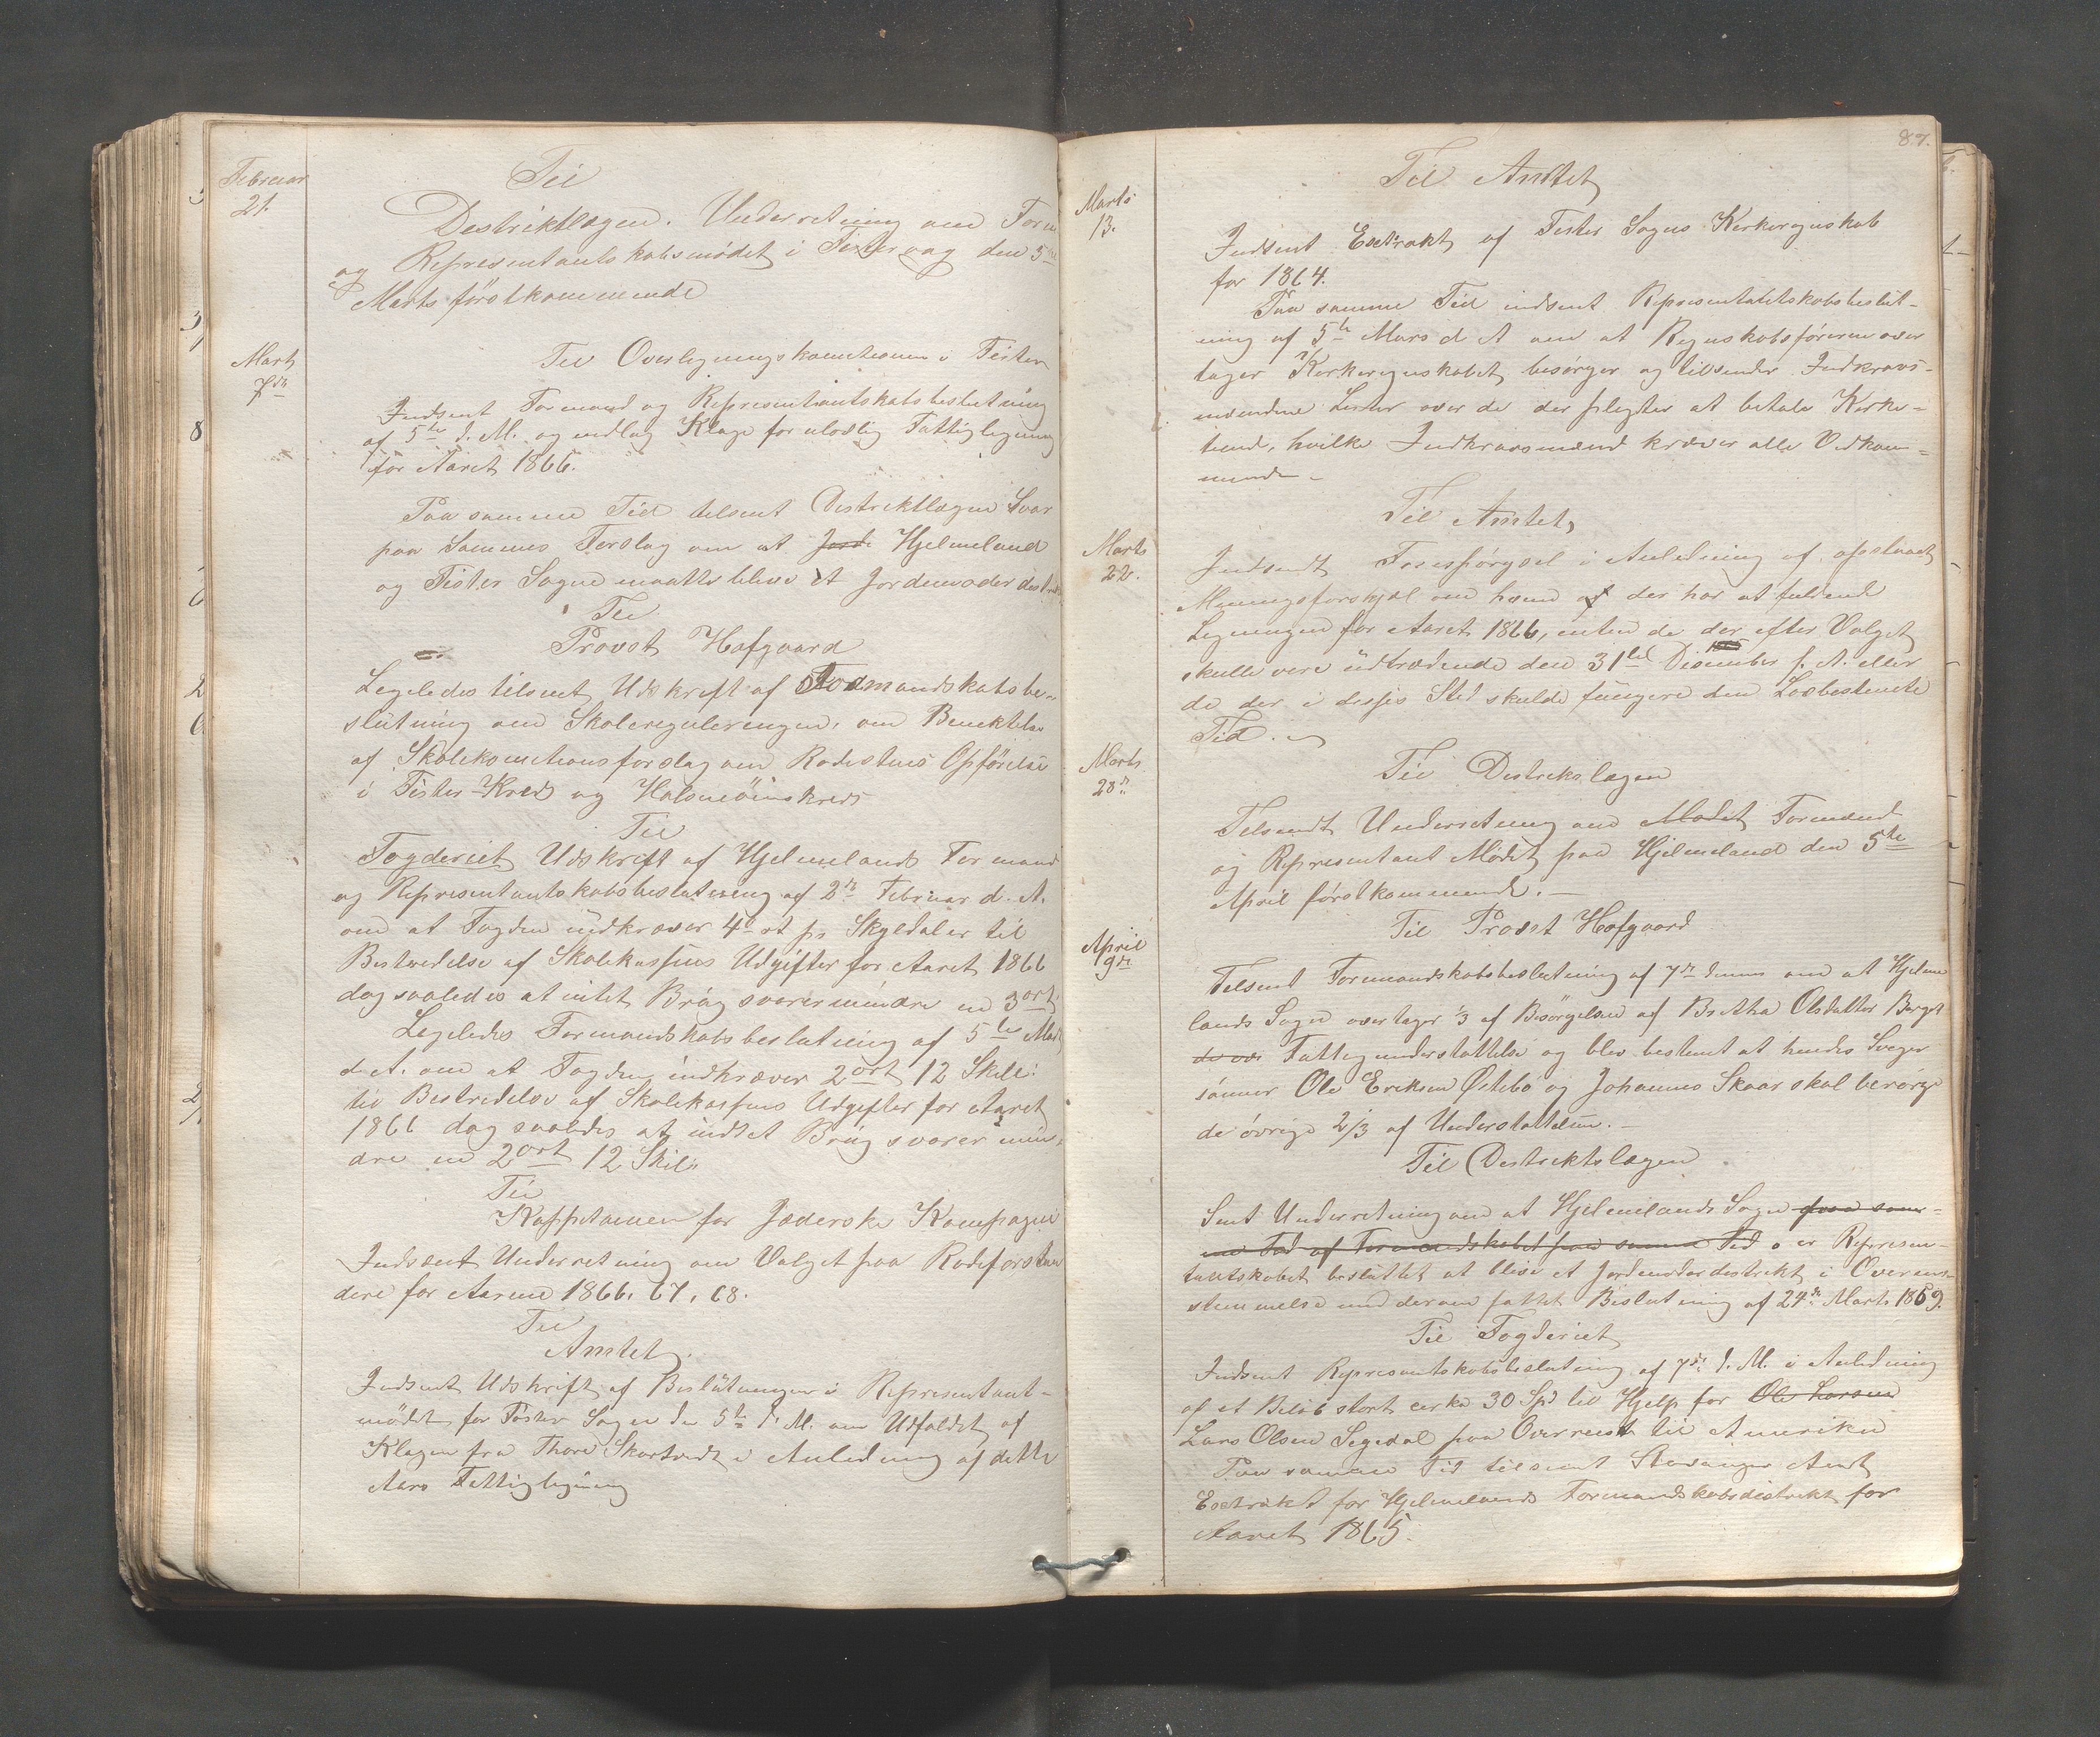 Februar
21.
Til
Destriktlægen. Underretning om Form
og Representantskabsmödet i Fistervaag den 5te
Marts förstkommende
Marts
7de
Til Overligningskomitionen i Fister
Indsent Formand og Representantskabsbeslutning
af 5te d. M. og indlag Klage for ulovlig Fattigligning
for Aaret 1866.
Paa samme Tid tilsent Destriktlægen Svar
paa Sammes Forslag om at Hjelmeland
og Fister Sogne maatte blive et Jordemoderdestrikt
Til
Provst Hofgaard
Legeledes tilsent Udskrift af Formandskabsbe-
slutning om Skolereguleringen, om Benektelse
af Skolekomitions forslag om Rodestues Opförelse
i Fister Kreds og Halsneöens kreds
Til
Fogderiet Udskrift af Hjelmelands Formand
og Representantskabsbeslutning af 2den Februar d. A.
om at Fogden indkræver 4 ort pr Skyldaler til
Bestredelse af Skolekassens Udgifter for Aaret 1866
dog saaledes at intet Brug svarer mindre en 3 ort
Legeledes Formandskabsbeslutning af 5te Marts
d. A. om at Fogden indkræver 2 ort 12 Skill.
til Bestridelse af Skolekassens Udgifter for Aaret
1866 dog saaledes at indtet Brug svarer min-
dre en 2 ort 12 Skil.
Til
Kappetainen for Jæderske Kompagni
Indsent Underretning om Valget paa Rodeforstan
dere for Aarene 1866. 67. 68.
Til
Amtet.
Indsent Udskrift af Beslutninger i Representant-
mödet for Fister Sogn den 5te d. M. om Udfaldet af
Klagen fra Thore Skartvedt i Anledning af dette
Aars Fattigligning
87.
Marts
13.
Til Amtet
Indsent Exstrakt af Fister Sogns Kirkeregnskab
for 1864.
Paa samme Tid indsent Representantskabsbeslut-
ning af 5te Mars d A om at Regnskabsföreren over
tager Kirkeregnskabet, besörger og tilsender Indkrævs-
mændene Lister over de der plegter at betale Kirke-
tiend, hvilke Indkravsmænd kræver alle Vedkom-
mende.
Marts
22.
Til Amtet,
Indsendt Forespörgsel i Anledning af opstaaet
Meningsforskjel om hvem af der har at fuldende
Legningen for Aaret 1866, enten de der efter Valget
skulle være üdtrædende den 31te Disember f. A. eller
de der i desses Sted skulde fungere den Lovbestemte
Tid.
Marts
28de
Til Destrikslægen
Tilsendt Underretning om Modet Formænd
og Representant Mödet paa Hjelmeland den 5te
April förstkommende.
April
9de
Til Provst Hofgaard
Tilsent Formandskabsbeslutning af 7de dennes om at Hjelme
lands Sogn overtager 1/3 af Besörgelsen af Bretha Olsdatter Berget
Fattigunderstøttelse og blev bestemt at hendes Sviger
sönner Ole Eriksen Østebö og Johannes Skaar skal besörge
de övrige 2/3 af Understøttelsen.
Til Destriktslægen
Sent Underretning om at Hjelmelands Sogn paa sam-
me Tid af Formandskabet paa samme Tid er Represen-
tantskabet besluttet at blive et Jordemoderdestrikt i Overens-
stemmelse med derom fattet Beslutning af 24de Marts 1859.
Til Fogderiet
Indsent Represantskabsbeslutning af 7de d. M. i Anledning
af et Belöb stort cirka 30 Spd til Hjelp for Ole Larsen
Lars Olsen Segedal paa Overreise til Amerika
Paa samme Tid tilsent Stavanger Amt
Exstrakt for Hjelmelands Formandskabsdistrikt for
Aaret 1865.